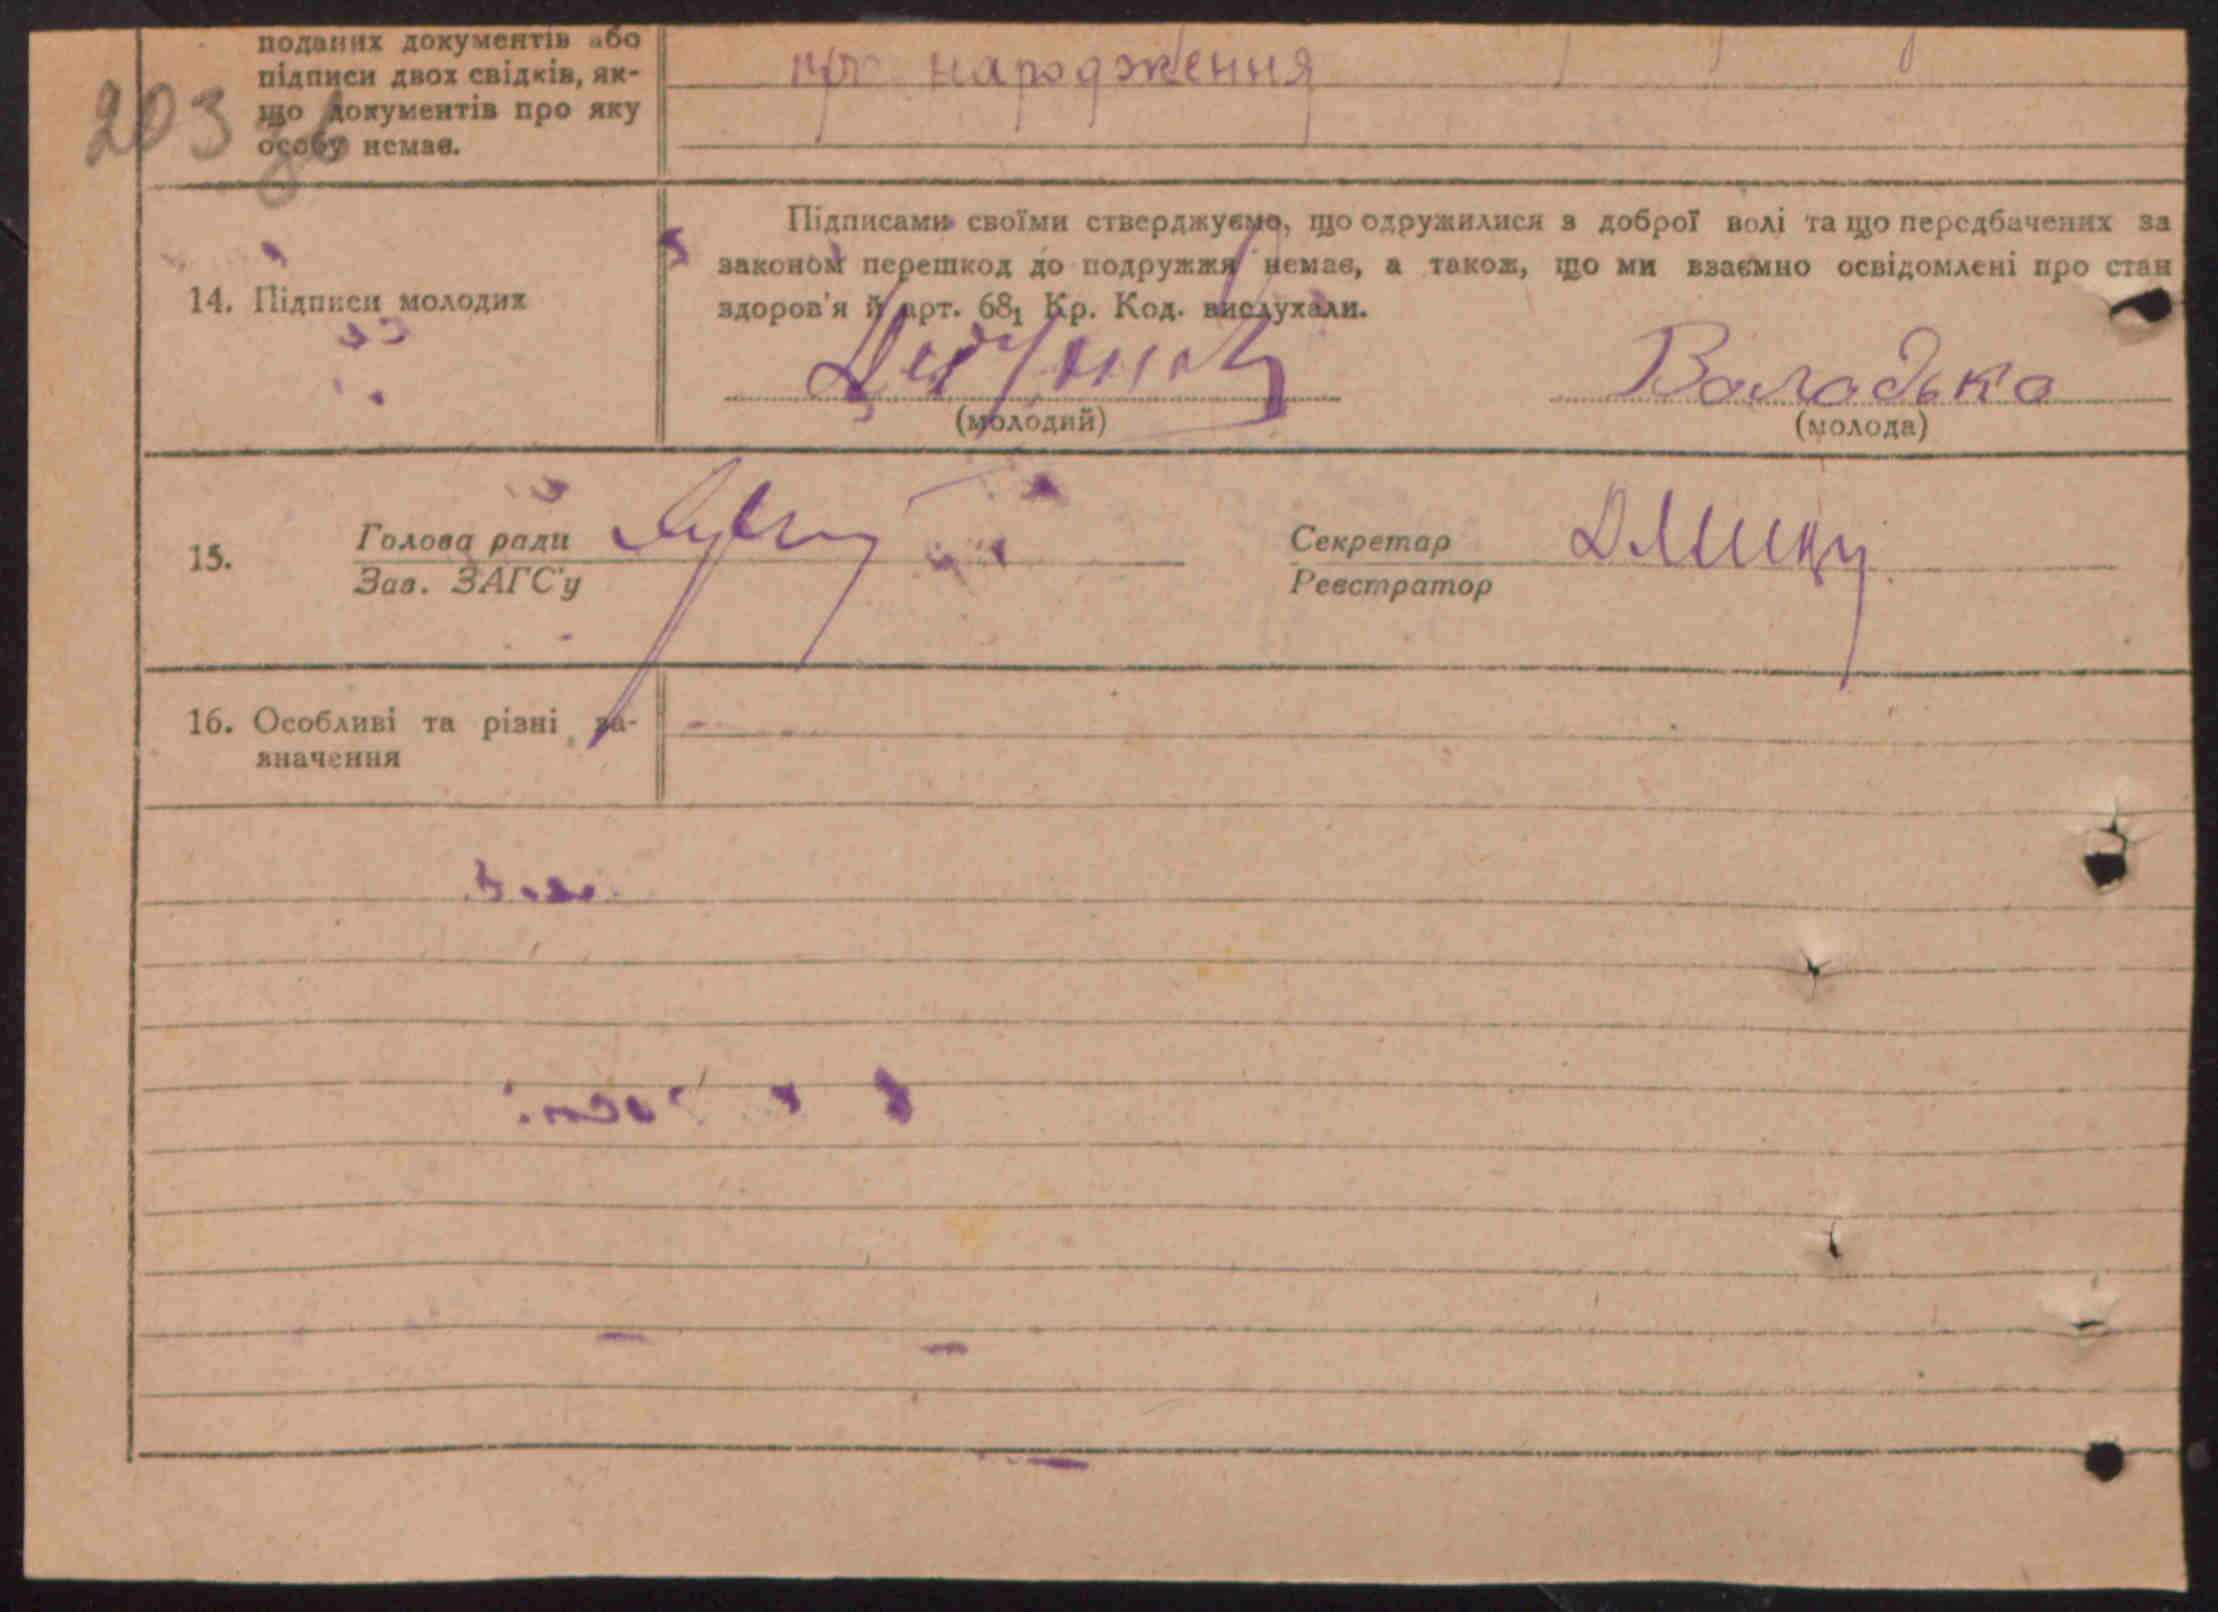 поданих документів або
підписи двох свідків, як-
що документів про яку
особу немає.
203 зв
про народження
14. Підписи молодих
Підписами своїми стверджуємо, що одружилися з доброї волі та що передбачених за
законом перешкод до подружжя немає, а також, що ми взаємно освідомлені про стан
здоров'я й арт. 68₁ Кр. Код. вислухали.
Володько
(молодий)
(молода)
15.
Голова ради
Зав. ЗАГС'у
Секретар
Реєстратор
16. Особливі та різні за-
значення